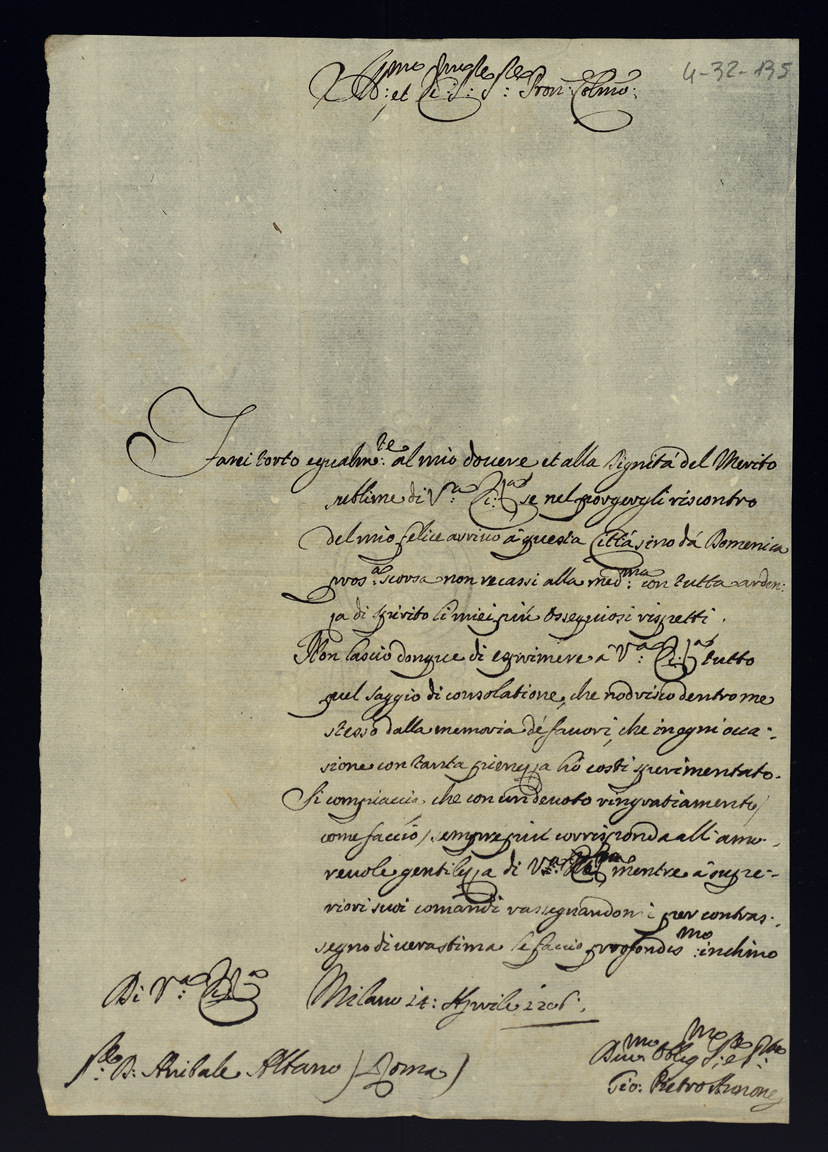 4-32-135
Ill:mo et Ecc: S:re Pron: Colmo:
Farei torto egualm:te al mio dovere et alla Dignità del Merito
sublime di V:a se nel porgergli riscontro
del mio felice arrivo à questa Città sino dà Domenica
pros:a scorsa non recassi alla med:ma con tutta arden:
za di spirito li miei più ossequiosi rispetti.
Non lascio donque di esprimere à V:a tutto
quel saggio di consolatione, che nodrisco dentro me
stesso dalla memoria de' favori, che in ogni occa:
sione con tanta pienezza hò costì sperimentato.
Si compiaccia che con un devoto ringratiamento /
come faccio / sempre più corrisponda all'amo:
revole gentilezza di V:a mentre à supe:
riori suoi comandi rassegnandomi per contras:
segno di vera stima le faccio profondis:mo inchino
Di V:a Milano 14: Aprile 1706.
S:re D: Anibale Albano / Roma /
Div:mo Oblig:mo
Gio: Pietro